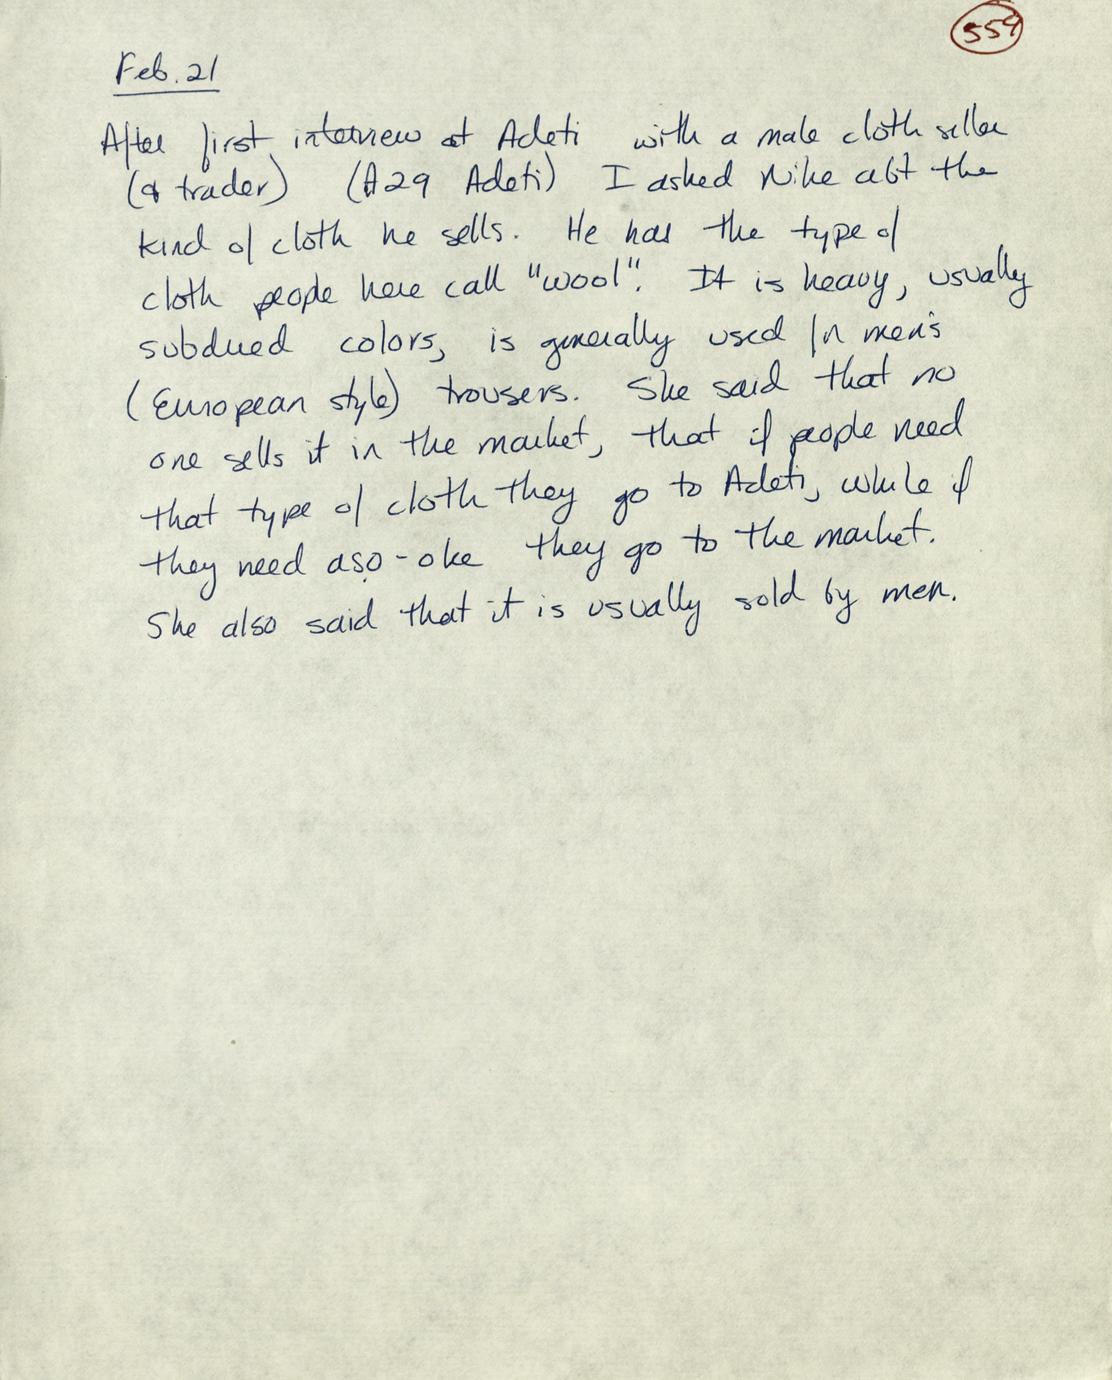 554
Feb. 21
After first interview at Adeti with a male cloth seller
(& trader) (A29 Adeti) I asked Nike abt the
kind of cloth he sells. He has the type of
cloth people here call "wool". It is heavy, usually
subdued colors, is generally used in men's
(European style) trousers. She said that no
one sells it in the market, that if people need
that type of cloth they go to Adeti, while if
they need aṣo-oke they go to the market.
She also said that it is usually sold by men.